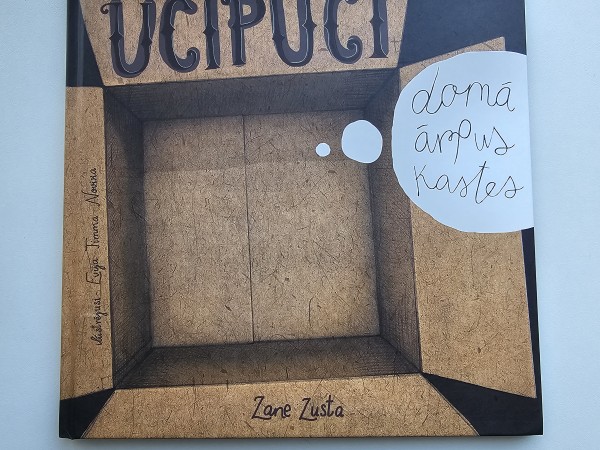 UCIPUCI
domā
ārpus
kastes
ilustrējusi Evija Timma Novika
Zane Zusta